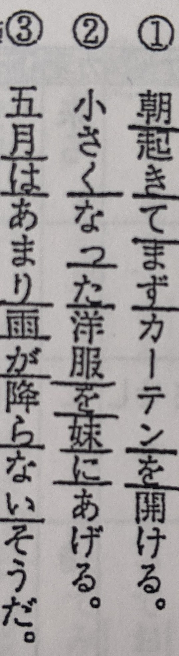 ① 朝起きてまずカーテンを開ける。
② 小さくなった洋服を妹にあげる。
③ 五月はあまり雨が降らないそうだ。